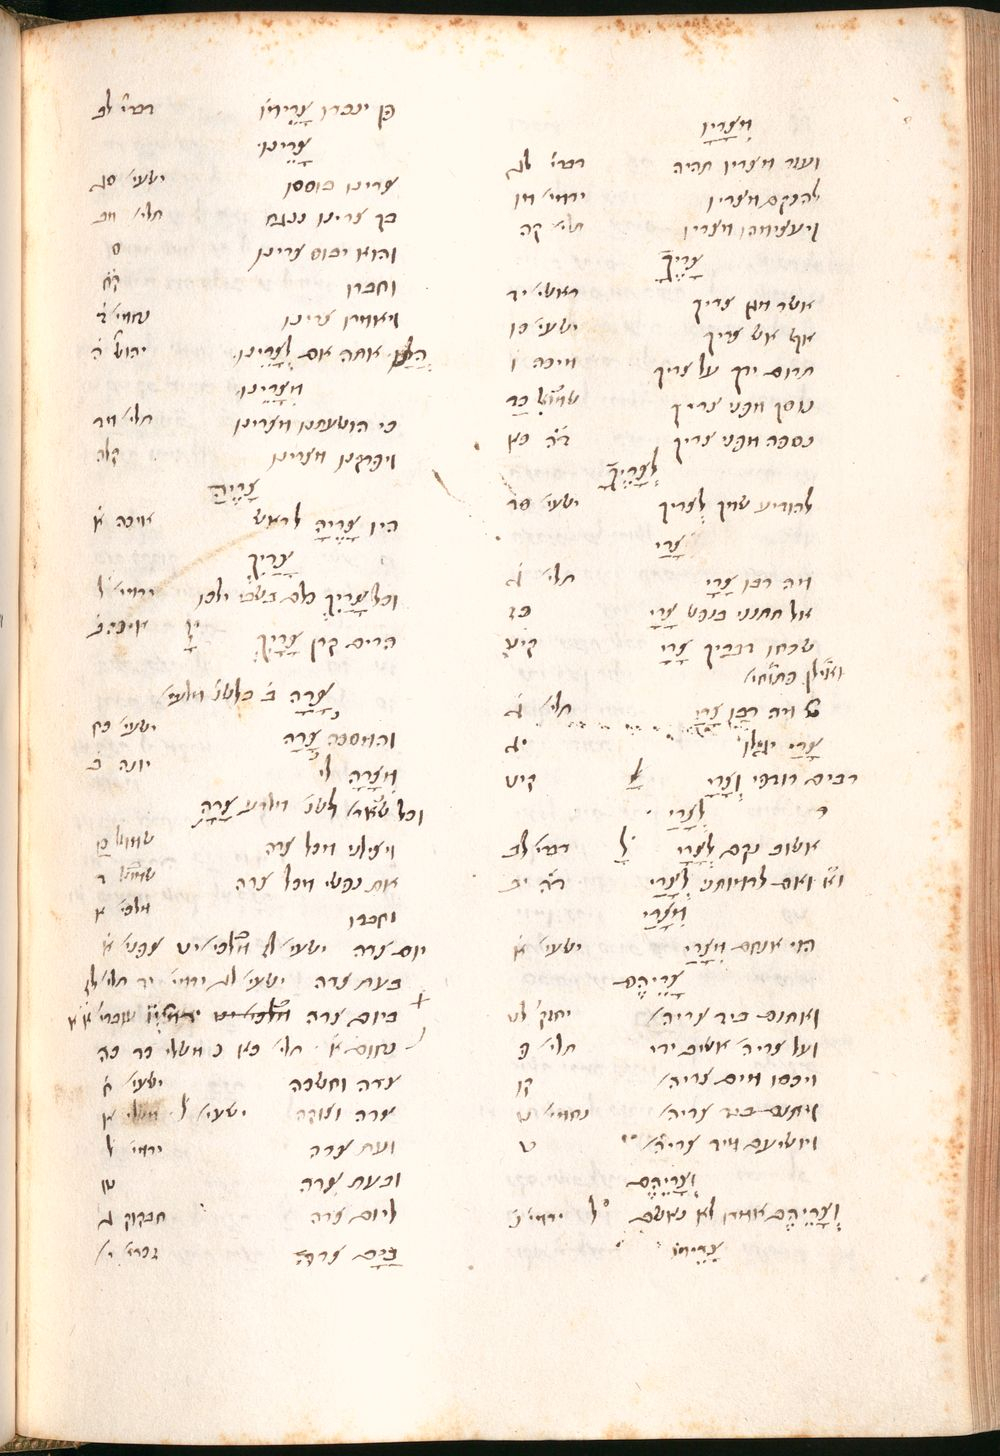 מִצָּרָיו
ועזר מצריו תהיה דברי׳ לג
להנקם מצריו ירמי׳ מו
ויעצימהו מצריו תלי׳ קה
צָרֶיךָ
אשר מגן צריך ראשי׳ יד
אף אש צריך ישעי׳ כו
תרום ידך על צריך מיכה ו
נוסך מפני צריך שמו׳ש כד
נספה מפני צריך ד״ה כא
לְצָרֶיךָ
להודיע שמך לְצריך ישעי׳ סד
צָרַי
מה רבו צָרָי תלי׳ ג
אל תתנני בנפש צָרָי כז
שכחו דבריך צָרָי קיט
ואי׳לן פתוחי׳
מה רַבּוּ צָרַי תלי׳ ג
צָרַי יגילו יג
רבים רודפי וְצָרָי קיט
לְצָרַי
אשיב נקם לְצָרָי דברי׳ לב
ואם לרמותני לְצָרַי ד״ה יב
מִצָּרַי
הוי אנחם מִצָּרַי ישעי׳ א
צָרֵיהֶם
ואתנם ביד צריה׳ יחזק׳ לט
ועל צריה׳ אשיב ידי תלי׳ פ
ויכסו מים צריה׳ קו
ותתנם ביד צריה׳ נחמי׳ ט
ויושיעם מיד צריה׳ ט
וְצָרֵיהֶם
וְצָרֵיהֶם אמרו לא נאשם ירמי׳ נ
צָרֵימוֹ
פן ינכרו צָרֵימוֹ דברי׳ לב
צָרֵינוּ
צרינו בוססו ישעי׳ סג
בך צרינו ננגח תלי׳ מד
והוא יבוס צרינו ס
וחברו קח
ויאמרו צרינו נחמי׳ ד
הֲלָנוּ אתה אם לְצָרֵינוּ יהוש׳ ה
מִצָּרֵינוּ
כי הושעתנו מצרינו תלי׳ מד
ויפרקנו מצרינו קלו
צָרֶיהָ
היו צָרֶיהָ לראש איכה א
צָרַיִךְ
וכל צָרַיִךְ כלם בשבי ילכו ירמי׳ ל
הרים קרן צָרָיִךְ איכה ב
צָרָה ב׳ בלשנ׳ מלעי׳
והמסכה צָרָה ישעי׳ כח
מִצָּרָה לי יונה ב
וכל שאר׳ לשנ׳ מלרע צָרָה
ויצילני מכל צרה שמו׳ש כו
את נפשי מכל צרה שמו׳ש ד
וחברו מלכי׳ א
יום צרה ישעי׳ לז מלכי׳ יט צפני׳ א
בעת צרה ישעי׳ לג ירמי׳ יד תלי׳ לז
ביום צרה עובדי׳ א
נחום א תלי׳ כא כ משלי כד כה
צרה וחשכה ישעי׳ ח
צרה וצוקה ישעי׳ ל משלי א
ועת צרה ירמי׳ ל
ובעת צרה טו
ליום צרה חבקוק ג